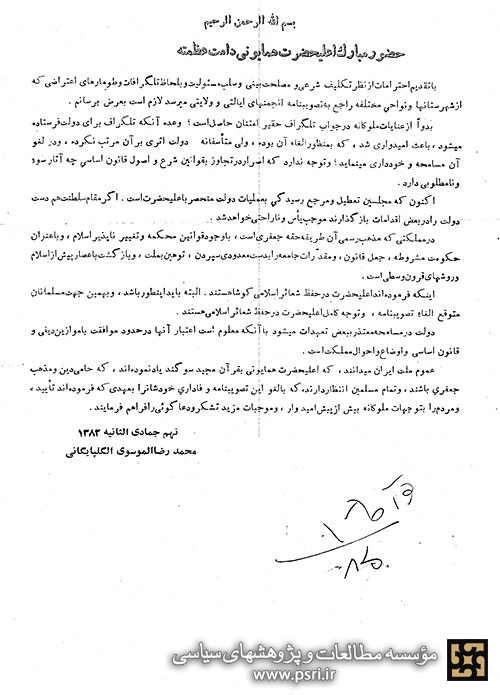 بسم الله الرحمن الرحیم
حضور مبارك اعلیحضرت همایونی دامت عظمته
باتقدیم احترامات از نظر تکلیف شرعی و مصلحت بینی و سلب مسئولیت و بلحاظ تلگرافات و طومارهای اعتراضی که
از شهرستانها و نواحی مختلفه راجع به تصویبنامه انجمنهای ایالتی و ولایتی میرسد لازم است بعرض برسانم .
بدواً از عنایات ملوکانه در جواب تلگراف حقیر امتنان حاصل است ؛ وعده آنکه تلگراف برای دولت فرستاده
میشود ، باعث امیدواری شد ، که بمنظور الغاء آن بوده ، ولی متأسفانه دولت اثری بر آن مرتب نکرده ، و در لغو
آن مسامحه و خودداری مینماید ؛ و توجه ندارد که اصرار در تجاوز بقوانین شرع و اصول قانون اساسی چه آثار سوء
و نامطلوبی دارد .
اکنون که مجلسین تعطیل و مرجع رسیدگی بعملیات دولت منحصر باعلیحضرت است . اگر مقام سلطنت هم دست
دولت را در بعض اقدامات باز گذارند موجب یأس و ناراحتی خواهد شد .
در مملکتی که مذهب رسمی آن طریقه حقه جعفری است ، با وجود قوانین محکمه و تغییر ناپذیر اسلام ، و با عنوان
حکومت مشروطه ، جعل قانون ، و مقدّرات جامعه را بدست معدودی سپردن ، توهین بملت ، و بازگشت باعصار پیش از اسلام
و روشهای قرون وسطی است .
اینکه فرموده اند اعلیحضرت در حفظ شعائر اسلامی کوشا هستند . البته باید اینطور باشد ، و بهمین جهت مسلمانان
متوقع الغاء تصویبنامه ، و توجه کامل اعلیحضرت در حفظ شعائر اسلامی هستند .
دولت در مسامحه معتذر ببعض تعهدات میشود با آنکه معلوم است اعتبار آنها در حدود موافقت با موازین دینی و
قانون اساسی و اوضاع و احوال مملکت است .
عموم ملت ایران میدانند ، که اعلیحضرت همایونی بقرآن مجید سوگند یاد نموده اند ، که حامی دین و مذهب
جعفری باشند ، و تمام مسلمین انتظار دارند، که بالغو این تصویبنامه و فاداری خودشانرا بعهدی که فرموده اند تأیید ،
و مردم را بتوجهات ملوکانه بیش از پیش امیدوار ، و موجبات مزید تشکر و دعاگوئی را فراهم فرمایند .
نهم جمادی الثانیه ۱۳۸۲
محمد رضا الموسوی الگلپایگانی
مؤسسه مطالعات و پژوهشهای سیاسی
www.psri.ir